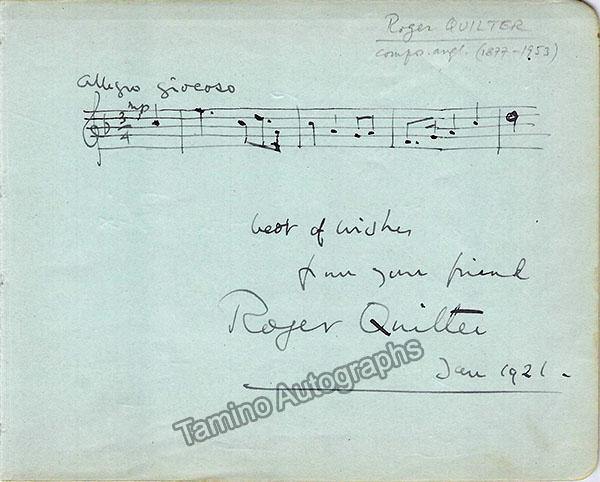 Roger QUILTER
compos. angl. (1877-1953)
Allegro giocoso
mp
3
4
best of wishes
from your friend
Roger Quilter
Jan 1921.
Tamino Autographs